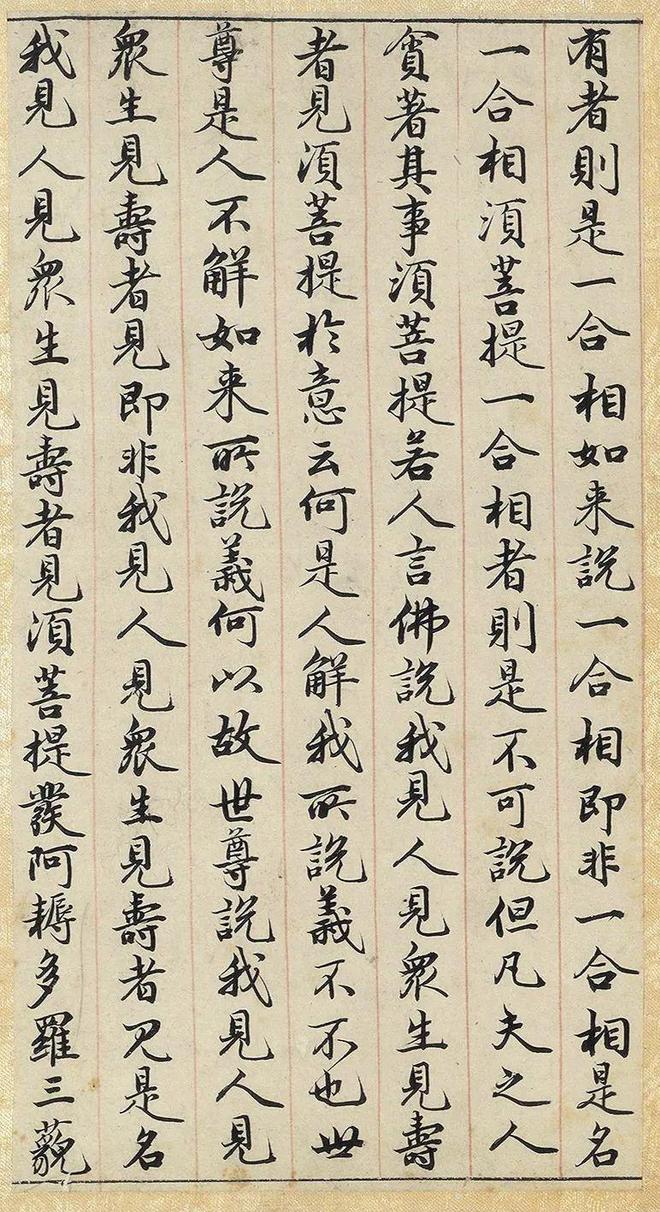 有者則是一合相如来説一合相即非一合相是名
一合相湏菩提一合相者則是不可説但凡夫之人
貪著其事湏菩提若人言佛説我見人見衆生見壽
者見湏菩提於意云何是人解我所説義不不也世
尊是人不解如来所説義何以故世尊説我見人見
衆生見壽者見即非我見人見衆生見壽者見是名
我見人見衆生見壽者見湏菩提發阿耨多羅三藐